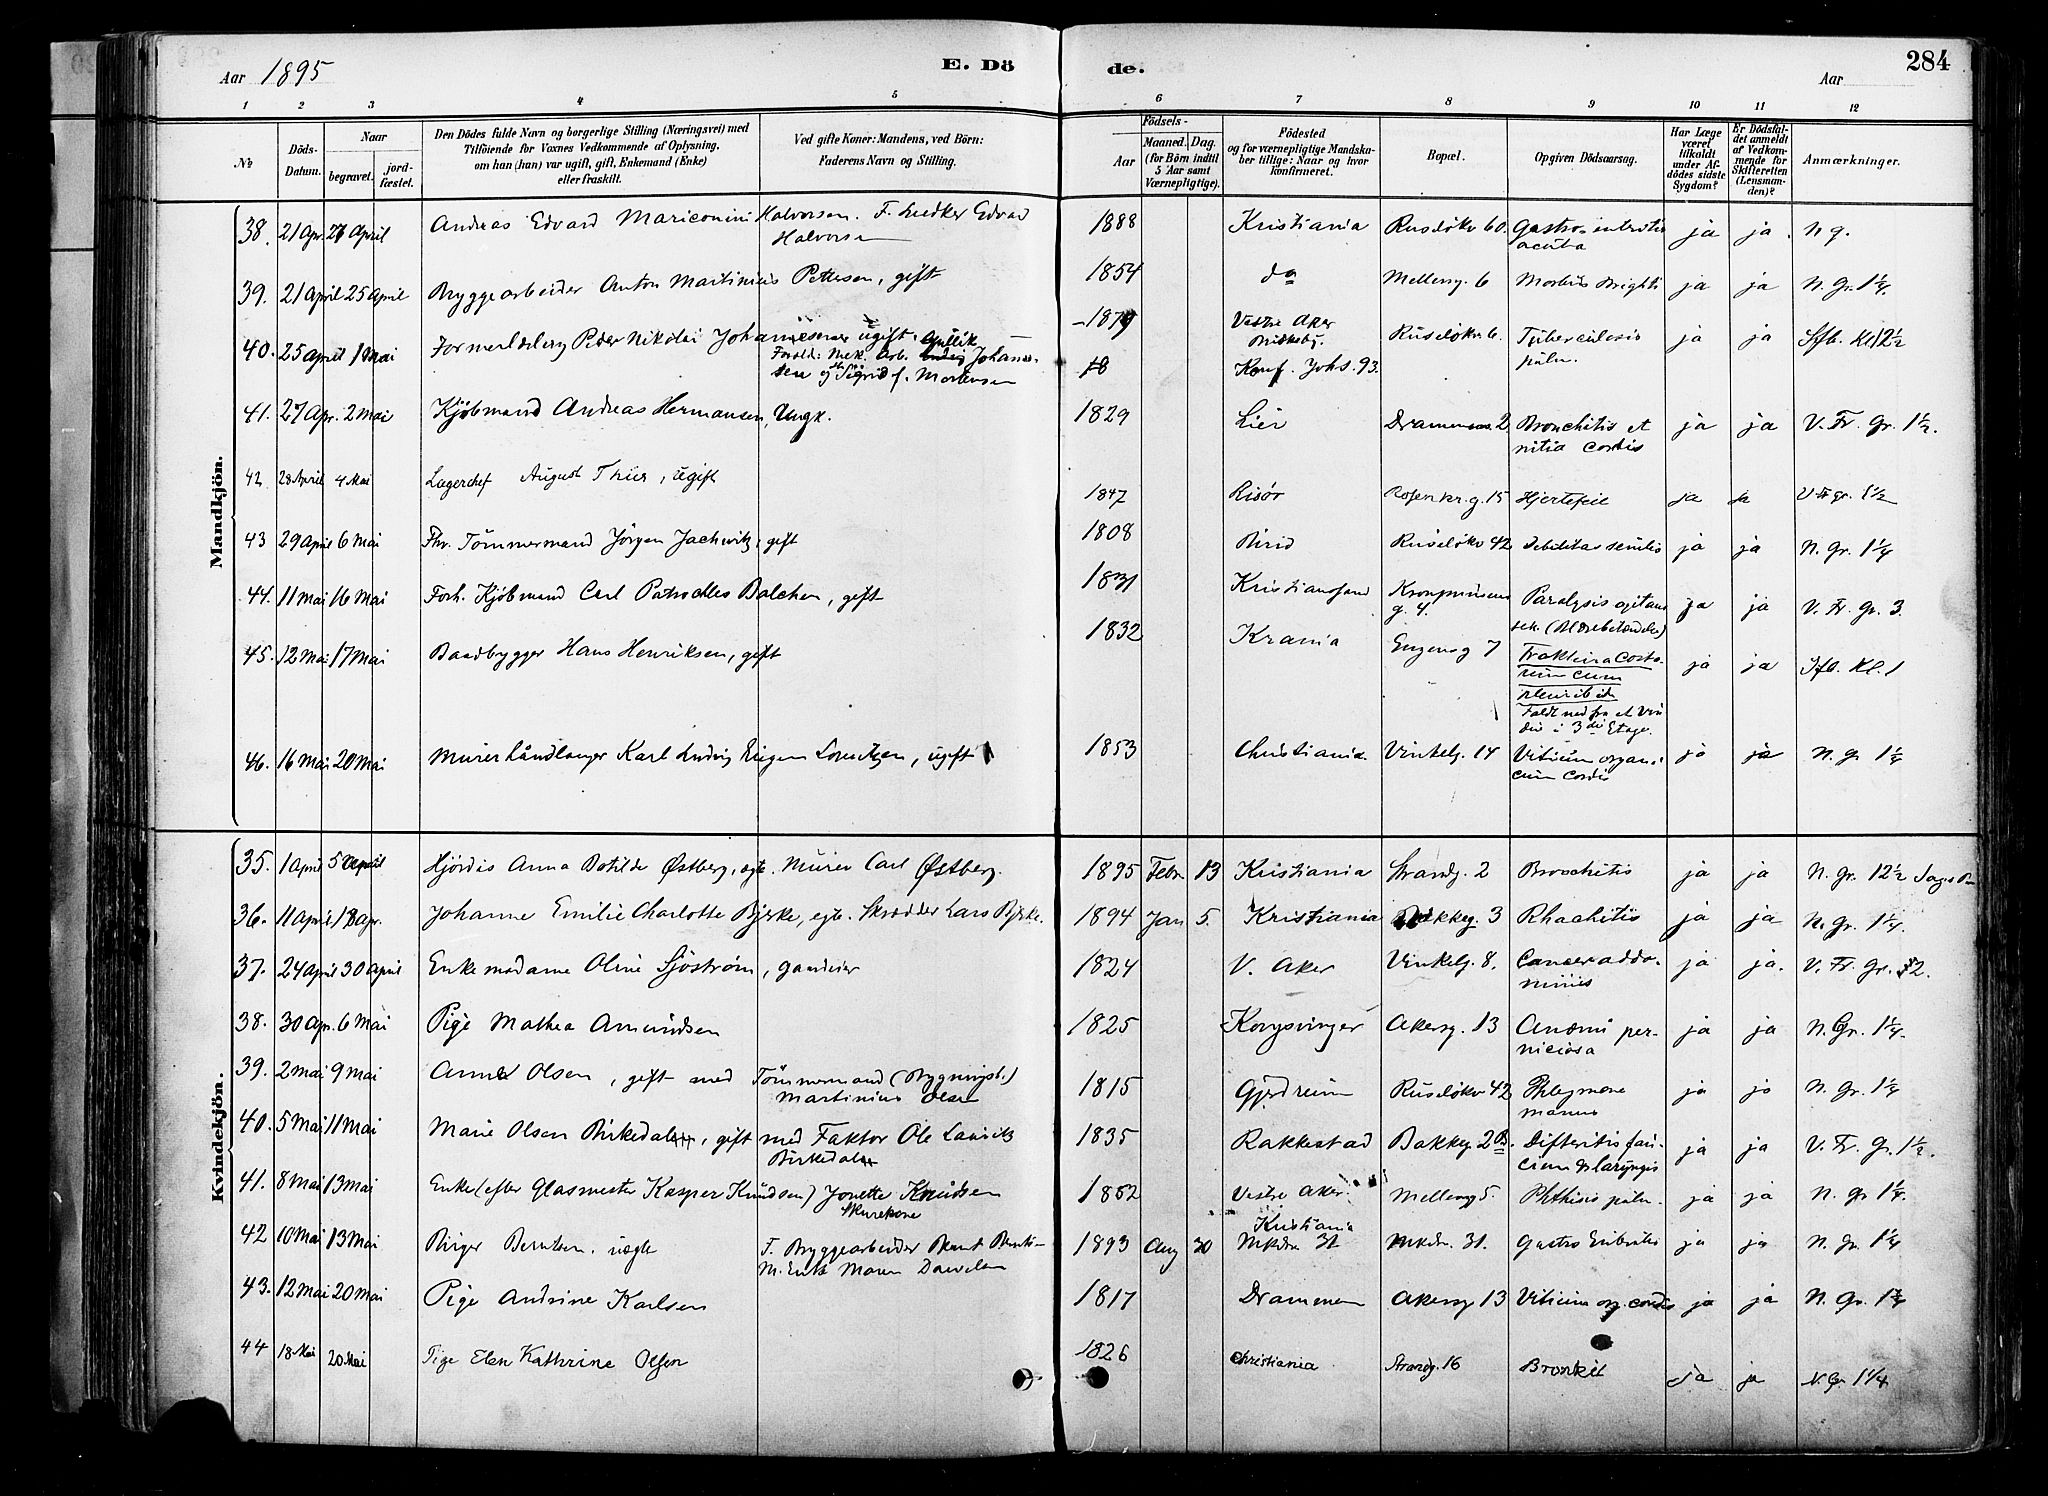 284
Aar 1895
E. Dö
de.
Aar
1 2 3 4 5 6 7 8 9 10 11 12
№
Döds-Datum.
Naar
begravet.
jord-fæstet.
Den Dödes fulde Navn og borgerlige Stilling (Næringsvei) med
Tilföiende for Voxnes Vedkommende af Oplysning,
om han (hun) var ugift, gift, Enkemand (Enke)
eller fraskilt.
Ved gifte Koner: Mandens, ved Börn:
Faderens Navn og Stilling.
Födsels-
Aar
Maaned. Dag.
(for Börn indtil
5 Aar samt
Værnepligtige).
Födested
og for værnepligtige Mandska-
ber tillige: Naar og hvor
konfirmeret.
Bopæl.
Opgiven Dödsaarsag.
Har Læge
været
tilkaldt
under Af-
dödes sidste
Sygdom?
Er Dödsfal-
det anmeldt
af Vedkom-
mende for
Skifteretten
(Lensman-
den)?
Anmærkninger.
Mandkjön.
38. 21 Apr. 27 April Andreas Edvard Halvorsen. F. Edvard 1888 Kristiania Ruselökv 60. Gastro enteritis ja ja. N g.
Halvorsen acuta
39. 21 April 25 April Bryggearbeider Anton Martinius Pettersen, gift 1854 do Mellemg. 6 Morbus Brighti ja ja N. Gr. 1¼.
40. 25 April 1 Mai Peder Nikolai Johannesen ugift. Gullik 1879 Vestre Aker Ruselökv 6. Tuberculosis ja ja Sfb. Kl 12½
Forald: Mek. Arb. Johannes- Briskeby. pulm.
sen og Sigrid f. Mortensen 18 Konf. Johs. 93.
41. 27 Apr. 2 Mai Kjöbmand Andreas Hermansen, Ungk. 1829 Lier Drammensv. 2 Bronchitis et ja ja V. Fr. Gr. 1½.
vitia cordis
42 28 April 4 Mai Lagerchef August Thiis, ugift 1847 Risör Rosenkr. g. 15 Hjertefeil ja ja V Fr gr. 1½
43 29 April 6 Mai Fhv. Tömmermand Jörgen Jachwitz, gift 1808 Birid Ruselökv 42 Debilitas senilis ja ja N. Gr. 1¼
44. 11 Mai 16 Mai Forh. Kjöbmand Carl Patrochles Balchen, gift 1831 Kristianssand Kronprinsens Paralysis agitans ja ja V. Fr. Gr. 3.
g. 4. sek. (Blærebetændelse)
45. 12 Mai 17 Mai Baadbygger Hans Henriksen, gift 1832 Krania Engensg 7 Fraktura costa- ja ja Sfb. Kl. 1
rum cum
pleuritide
Faldt ned fra et Vin
due i 3die Etage.
46. 16 Mai 20 Mai Murerhåndlanger Karl Ludvig Eugen Lorentzen, ugift 1853 Christiania. Vinkelg. 14 Vitium organi- ja ja N. gr 1¼
cum cordis
Kvindekjön.
35. 1 April 5 April Hjördis Anna Botilde Østberg, egte. Murer Carl Østberg. 1895 Febr. 13 Kristiania Strandg. 2 Bronchitis ja ja N. Gr. 12½
36. 11 April 18 Apr. Johanne Emilie Charlotte Bjerke, egte. Skrædder Lars Bjerke. 1894 Jan 5. Kristiania Bakkeg. 3 Rhachitis ja ja N. Gr. 1¼.
37. 24 April 30 April Enkemadame Oline Sjöström, 1824 V. Aker Vinkelg. 8. Cancer abdo- ja ja. V. Fr. Gr. 2.
minis
38. 30 Apr. 6 Mai Pige Mathea Amundsen 1825 Kongsvinger Akersg. 13 Anæmi per- ja ja N. Gr. 1¼.
niciosa
39. 2 Mai 9 Mai Anne Olsen, gift med Tömmermand (Bygningst.) 1815 Gjerdrum Ruselökv 42 Phlegmone ja ja N. Gr. 1¼
Martinius Olsen manus
40. 5 Mai 11 Mai Marie Olsen Birkedal, gift med Faktor Ole Lauritz 1835 Rakkestad Bakkeg 2B. Difteritis fau- ja ja V. Fr. Gr. 1½.
Birkedal cium & laryngis
41. 8 Mai 13 Mai Enke (efter Glasmester Kasper Knudsen) Jonette Knudsen 1852 Vestre Aker. Mellemg 5. Phthisis pulm. ja ja N. gr 1¼.
Skurekone
42 10 Mai 13 Mai Birger Berntsen, uægte F. Bryggearbeider Bernt Bernt- 1893 Aug 30 Kristiania Mkdv. 31. Gastro Enteritis ja ja N. Gr. 1¼
M. Enke Maren Mkdv 31
43. 12 Mai 20 Mai Pige Andrine Karlsen 1817 Drammen Akersg 13 Vitium org. cordis ja ja N. Gr. 1¼
44 18 Mai 20 Mai Pige Elen Kathrine Olsen 1826 Christiania Strandg. 16 Bronkit ja ja N. Gr. 1¼